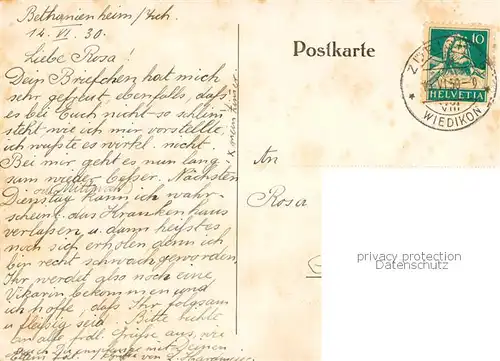 Bethanienheim/Zch.
14. VI. 30.
Liebe Rosa!
Dein Briefchen hat mich
sehr gefreut ebenfalls, daß
es bei Euch nicht so schlim
steht wie ich mir vorstellte,
ich wußte es wirkl. nicht.
Bei mir geht es nun lang-
sam wieder besser. Nächsten
oder Mittwoch
Dienstag kann ich wahr-
scheinl. das Krankenhaus
verlassen u. dann heißt es
noch sich erholen denn ich
bin recht schwach geworden
Ihr werdet also noch eine
Vikarin bekommen und
ich hoffe, daß Ihr folgsam
u fleißig seid! Bitte richte
allen frdl. Grüße aus, wie
Postkarte
10
HELVETIA
VIII
WIEDIKON
An
Rosa
privacy protection
Datenschutz